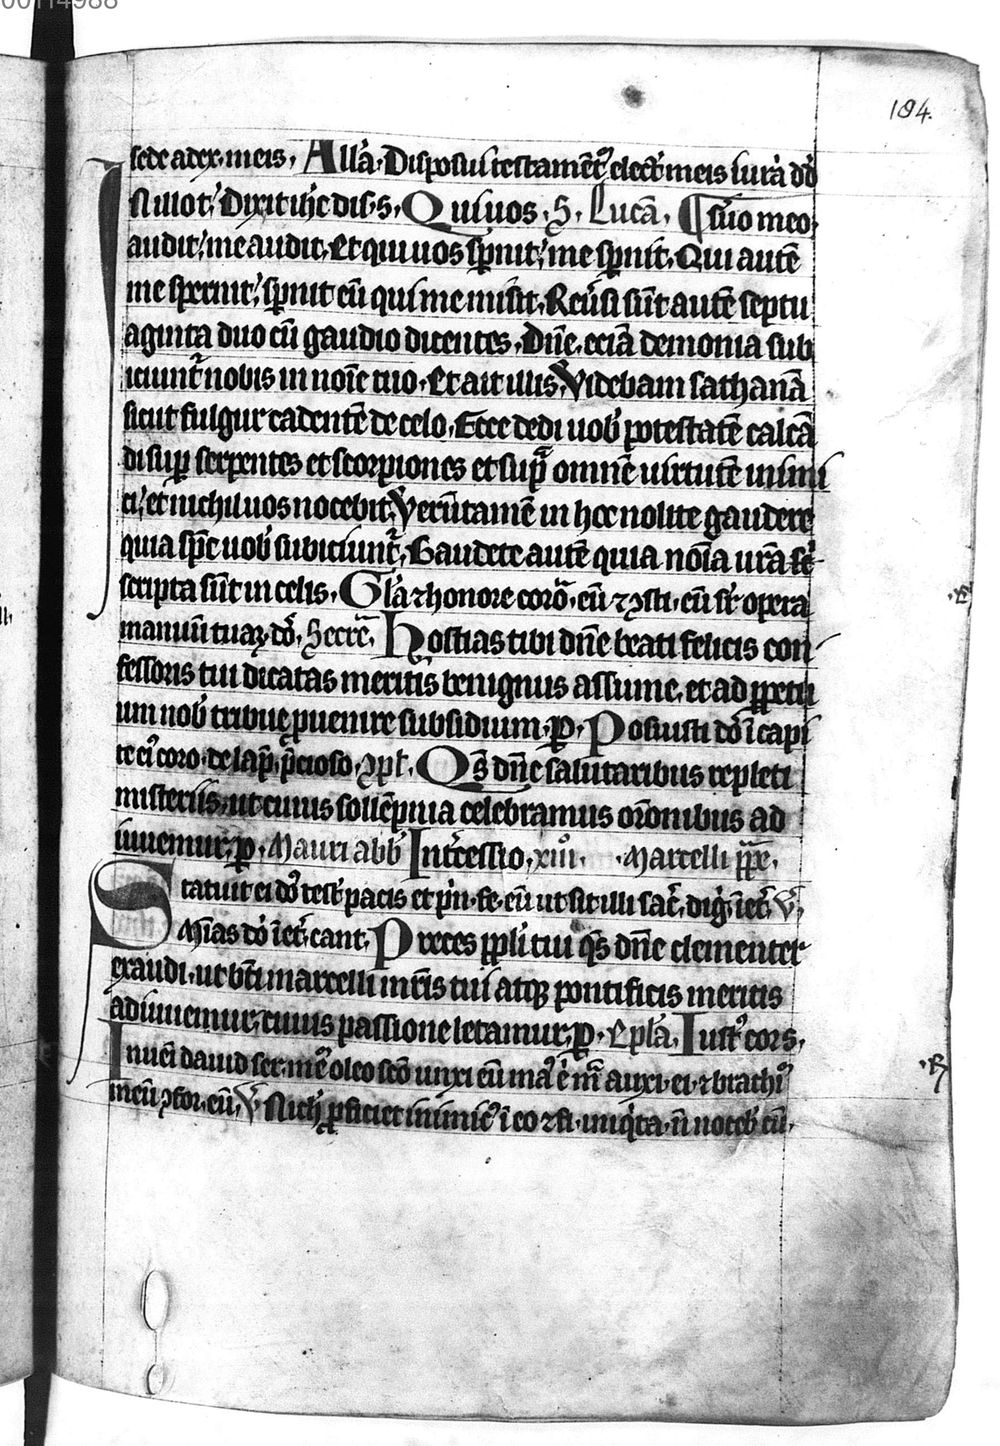 184.
sede a dex. meis. Alla. Disposui testament electis meis iuraui dd
In illot. Dixit ihc dis s. Qui uos. S. Lucā. suo meo.
audit. me audit. Et qui uos spnit. me spnit. Qui autē
me spernit. spnit eū qui me misit. Reusi sūt autē septu
aginta duo cū gaudio dicentes. Dn̄e. eciā demonia sub
iciunt nobis in noīe tuo. Et ait illis. Videbam sathanā
sicut fulgur cadentē de celo. Ecce dedi uob potestatē calcā
di sup serpentes et scorpiones et supra omnē uirtutē inimi
ci. et nichil uos nocebit. Verūtamē in hoc nolite gaudere
quia spc uob subiciunt. Gaudete autē quia noīa ura
scripta sūt in celis. Gla et honore coro. eū et 9sti. eū sr opera
manuū tuaꝝ dō. Secre. Hostias tibi dn̄e beati felicis con
fessoris tui dicatas meritis benignus assume. et ad ꝑpetu
um nob tribue ꝑuenire subsidium. ꝑ. Posuisti dō ī capi
te ei coro. de lap. pcioso. 9pl. Qs dn̄e salutaribus repleti
misteriis. ut cuius sollēpnia celebramus oronibus ad
iuuemur. ꝑ. Mauri abb Intcessio. xiii. Marcelli ppe.
Statuit ei dō test pacis et pn. fe. eū ut sit illi sac. dig. iet. V
Mias dō iet. cant. Preces ppli tui qs dn̄e clementer
exaudi. ut bti marcelli mris tui atqꝫ pontificis meritis
adiuuemur. cuius passione letamur. ꝑ. Epla. Iust cors.
Inueī dauid ser. me oleo scō unxi eū ma e m auxi. ei. et brachi
meū 9for. eū. V Nich ꝑficiet inimic ī eo et fi. iniqta. n nocebit eū.